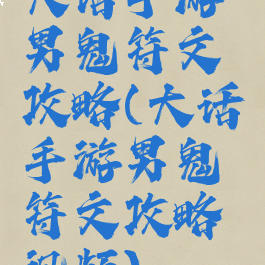 大话手游
男鬼符文
攻略(大话
手游男鬼
符文攻略
视频)